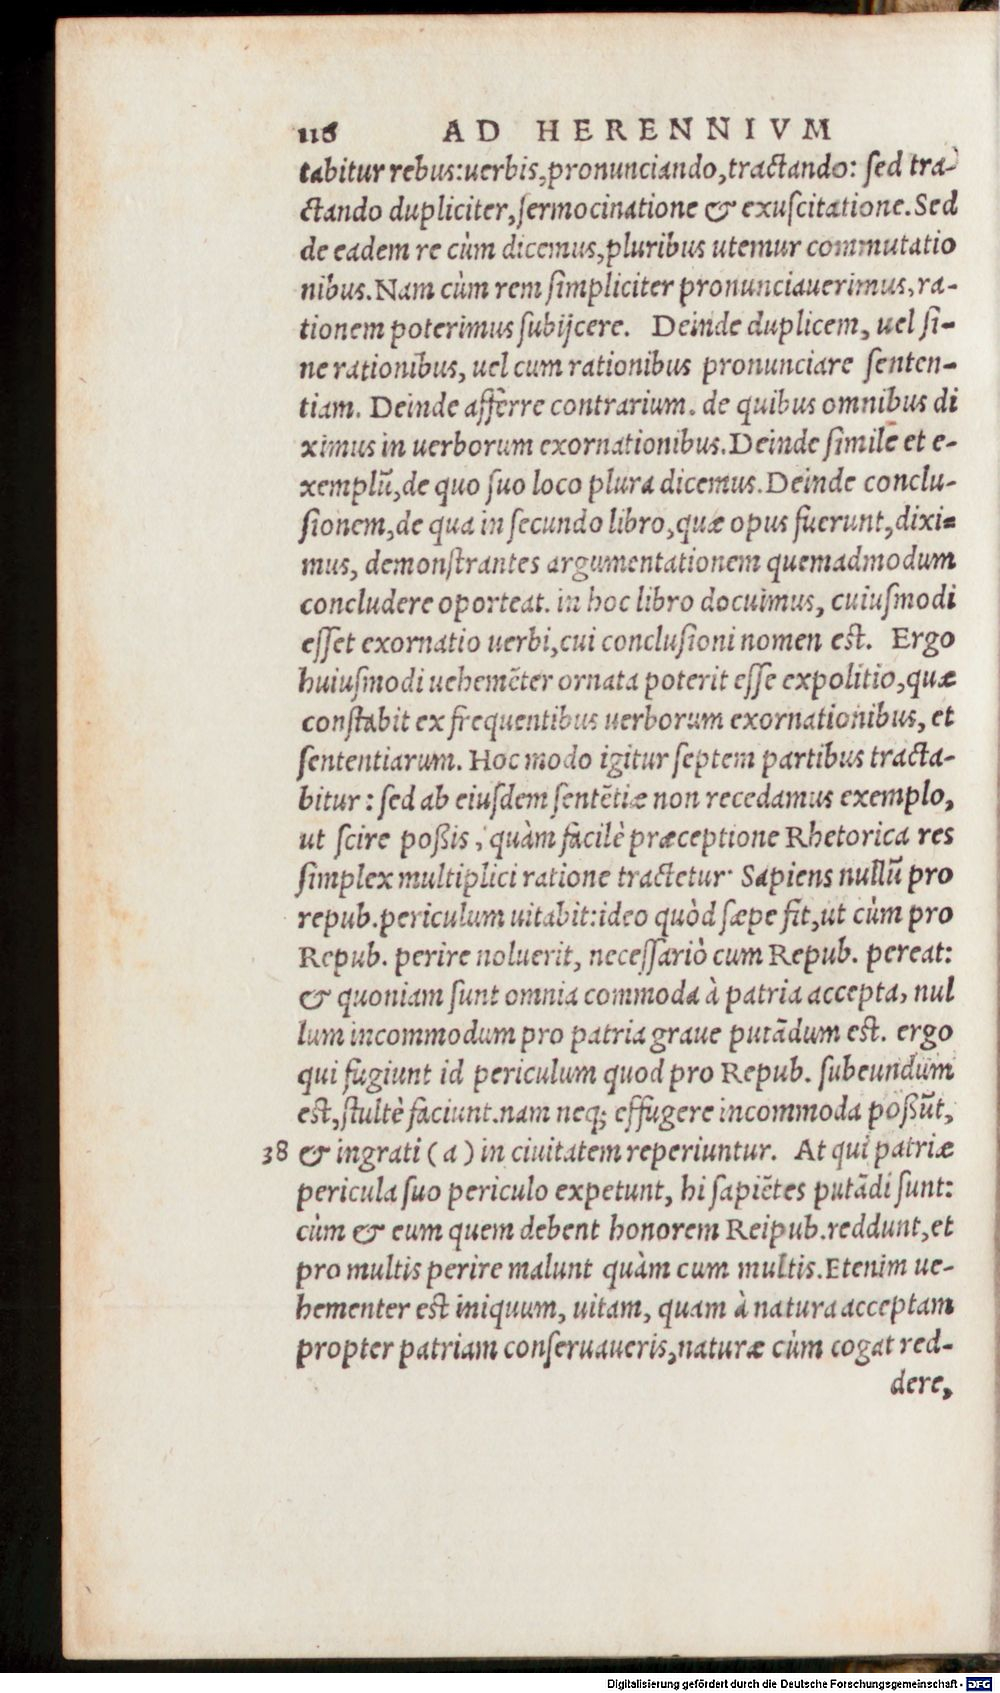 116 AD HERENNIVM
tabitur rebus: uerbis, pronunciando, tractando: sed tra-
ctando dupliciter, sermocinatione & exuscitatione. Sed
de eadem re cùm dicemus, pluribus utemur commutatio
nibus. Nam cùm rem simpliciter pronunciauerimus, ra-
tionem poterimus subijcere. Deinde duplicem, uel si-
ne rationibus, uel cum rationibus pronunciare senten-
tiam. Deinde afferre contrarium. de quibus omnibus di
ximus in uerborum exornationibus. Deinde simile et e-
xemplũ, de quo suo loco plura dicemus. Deinde conclu-
sionem, de qua in secundo libro, quæ opus fuerunt, dixi-
mus, demonstrantes argumentationem quemadmodum
concludere oporteat. in hoc libro docuimus, cuiusmodi
esset exornatio uerbi, cui conclusioni nomen est. Ergo
huiusmodi uehemẽter ornata poterit esse expolitio, quæ
constabit ex frequentibus uerborum exornationibus, et
sententiarum. Hoc modo igitur septem partibus tracta-
bitur: sed ab eiusdem sentẽtiæ non recedamus exemplo,
ut scire poßis, quàm facilè præceptione Rhetorica res
simplex multiplici ratione tractetur· Sapiens nullũ pro
repub. periculum uitabit: ideo quòd sæpe fit, ut cùm pro
Repub. perire noluerit, necessariò cum Repub. pereat:
& quoniam sunt omnia commoda à patria accepta, nul
lum incommodum pro patria graue putãdum est. ergo
qui fugiunt id periculum quod pro Repub. subeundum
est, stultè faciunt. nam neq; effugere incommoda poßũt,
38 & ingrati (a) in ciuitatem reperiuntur. At qui patriæ
pericula suo periculo expetunt, hi sapiẽtes putãdi sunt:
cùm & eum quem debent honorem Reipub. reddunt, et
pro multis perire malunt quàm cum multis. Etenim ue-
hementer est iniquum, uitam, quam à natura acceptam
propter patriam conseruaueris, naturæ cùm cogat red-
dere,
Digitalisierung gefördert durch die Deutsche Forschungsgemeinschaft - DFG